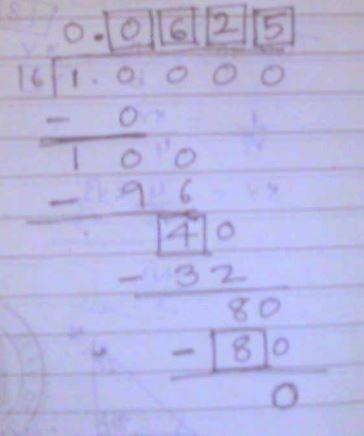 0.0625
16 1.0000
- 0
100
- 96
40
- 32
80
- 80
0